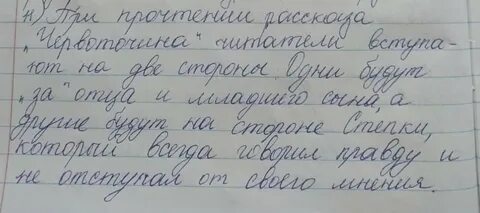 н) При прочтении рассказа
"Червоточина" читатели вступа-
ют на две стороны. Одни будут
"за" отца и младшего сына, а
другие будут на стороне Степки,
который всегда говорил правду и
не отступал от своего мнения.